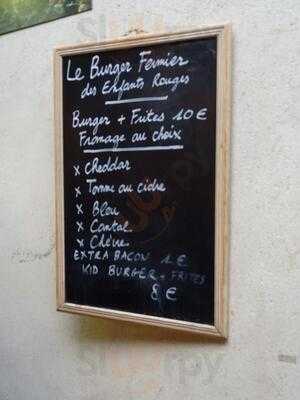 Le Burger Fermier
des Enfants Rouges
Burger + Frites 10 €
Fromage au choix
x cheddar
x Tomme au cidre
x Bleu
x Cantal
x Chèvre
EXTRA BACON 1 €
KID BURGER + FRITES
8 €